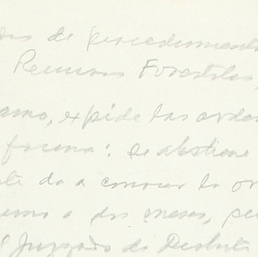 de procedimiento
Recursos Forestales,
expide las orden
forma: Se abstiene
da a conocer la or
a dos meses,
Juzgado de Distrito